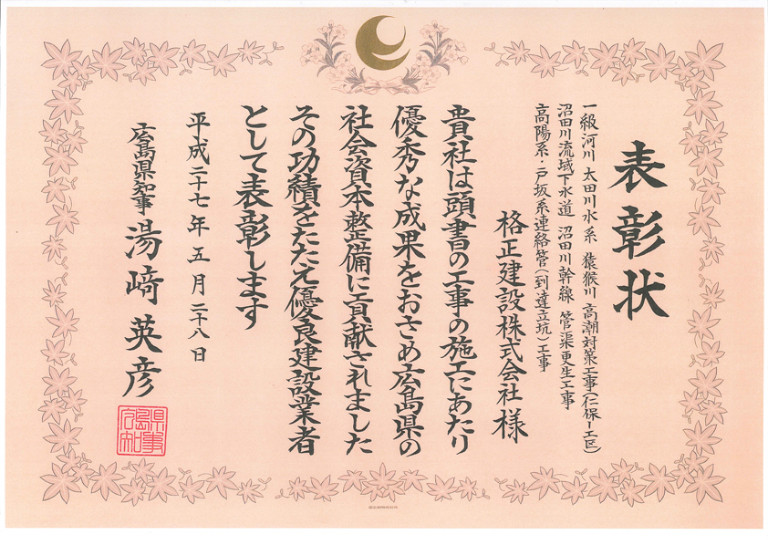 表彰状
一級河川 太田川水系 猿猴川 高潮対策工事(仁保一工区)
沼田川流域下水道 沼田川幹線 管渠更生工事
高陽系・戸坂系連絡管(到達立坑)工事
格正建設株式会社 様
貴社は頭書の工事の施工にあたり
優秀な成果をおさめ広島県の
社会資本整備に貢献されました
その功績をたたえ優良建設業者
として表彰します
平成二十七年五月二十八日
広島県知事 湯﨑英彦
広島県知事